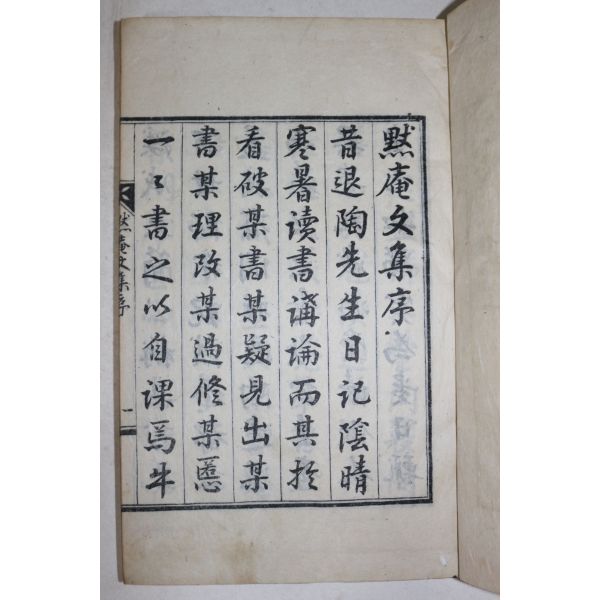 默庵文集序
昔退陶先生日記陰晴
寒暑讀書講論而其於
看破某書某疑見出某
書某理改某過修某慝
一〻書之以自課焉牛
默庵文集序
一